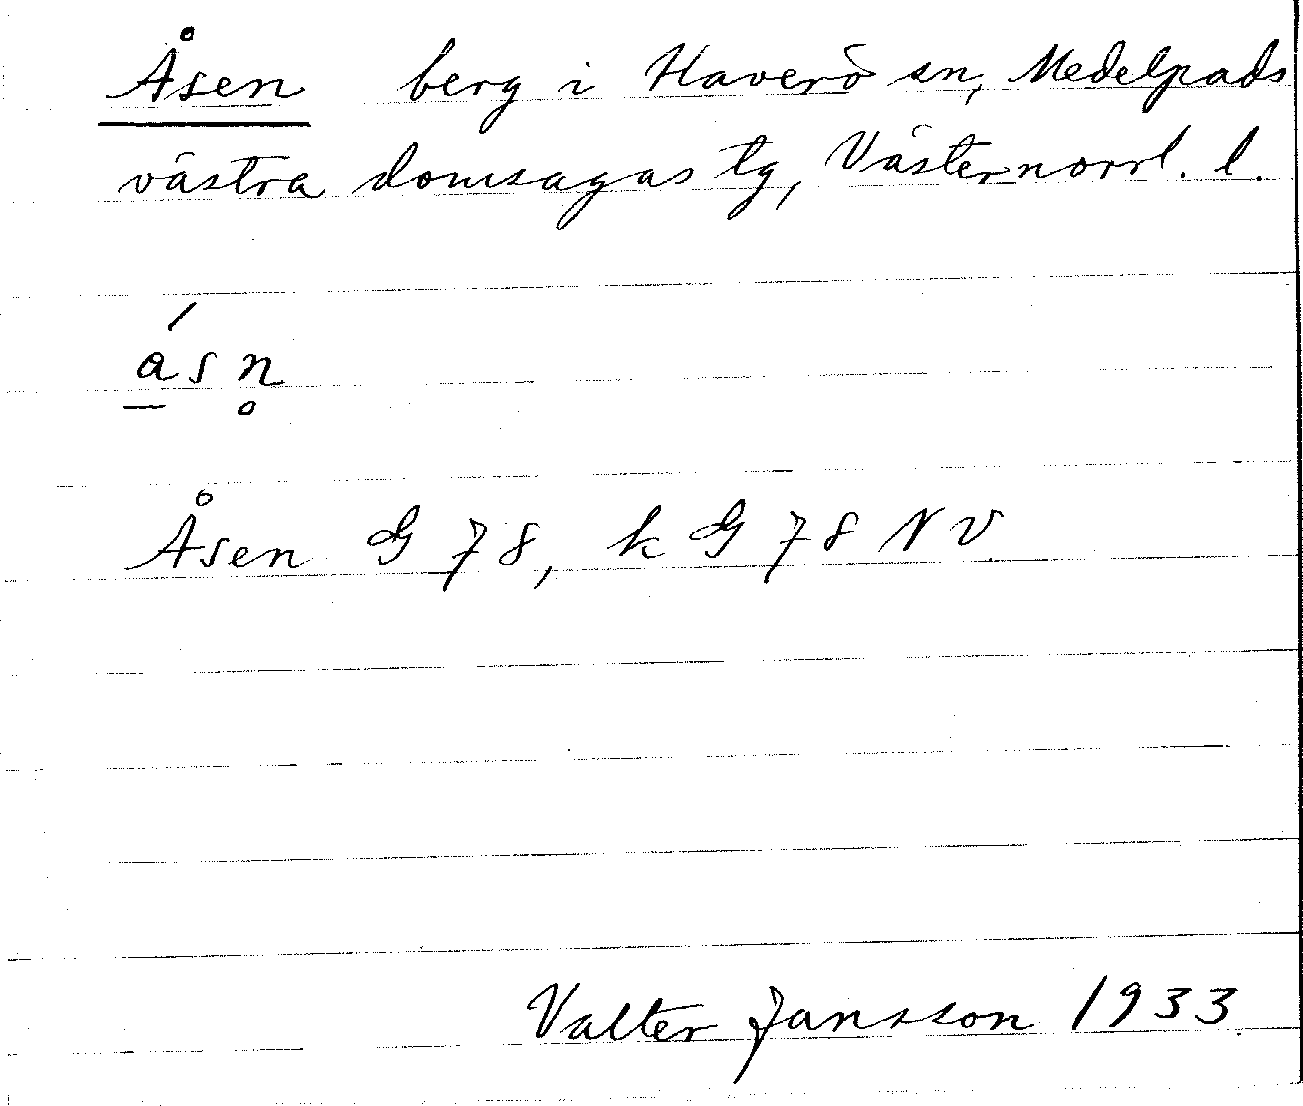 Åsen berg i Haverö sn, Medelpads
västra domsagas tg, Västernorrl. l.
á̱sn̥
Åsen G 78, k G 78 NV
Valter Jansson 1933